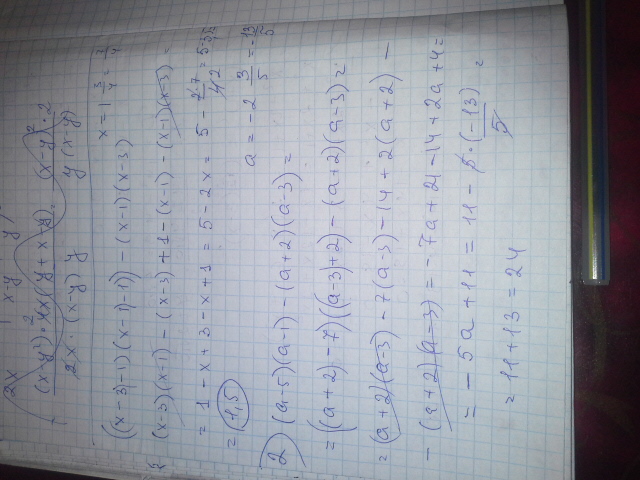 x = 1 3/4 = 7/4
((x-3)-1)(x-1)-1)) - (x-1)(x-3)
(x-3)(x-1) - (x-3) + 1 - (x-1) - (x-1)(x-3) =
= 1 - x + 3 - x + 1 = 5 - 2x = 5 - 2·7/42 = 5-3,5
= 1,5
a = -2 3/5 = -13/5
2) (a-5)(a-1) - (a+2)(a-3) =
= ((a+2) - 7)((a-3)+2) - (a+2)(a-3) =
= (a+2)(a-3) - 7(a-3) - 14 + 2(a+2) -
- (a+2)(a-3) = -7a + 21 - 14 + 2a + 4 =
= -5a + 11 = 11 - 5·(-13)/5 =
= 11 + 13 = 24